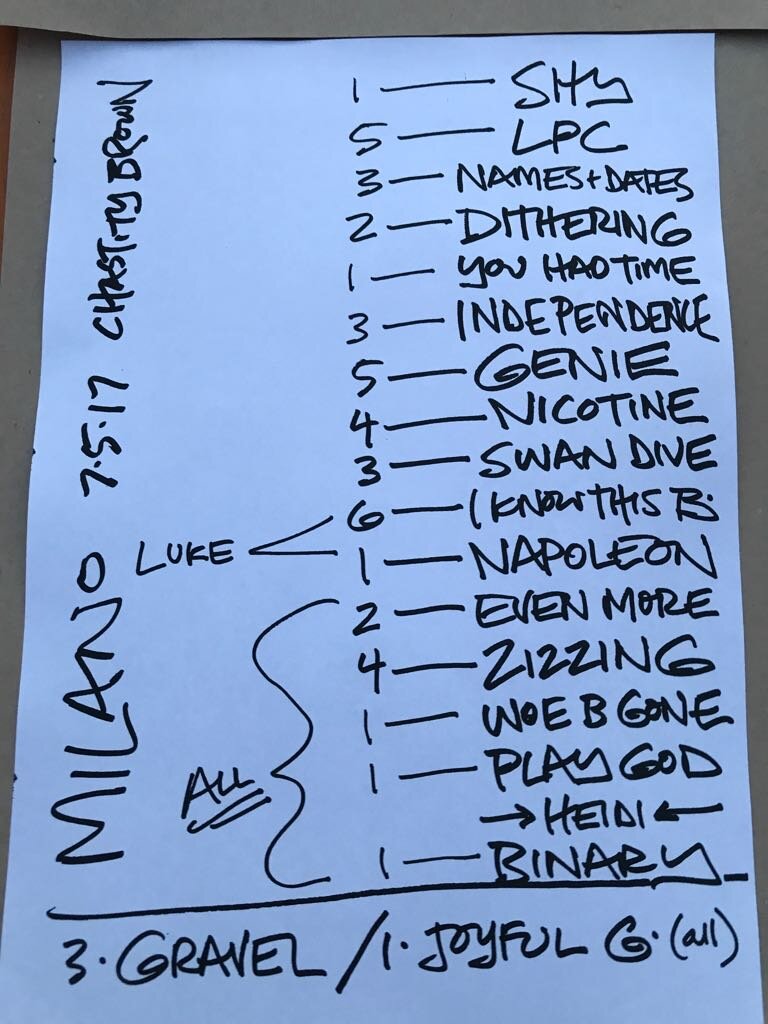 MILANO 7.5.17 CHASTITY BROWN
1 — SHY
5 — LPC
3 — NAMES + DATES
2 — DITHERING
1 — YOU HAD TIME
3 — INDEPENDENCE
5 — GENIE
4 — NICOTINE
3 — SWAN DIVE
6 — I KNOW THIS B.
LUKE
1 — NAPOLEON
2 — EVEN MORE
4 — ZIZZING
1 — WOE B GONE
1 — PLAY GOD
ALL
→ HEIDI ←
1 — BINARY
3. GRAVEL / 1. JOYFUL G. (all)